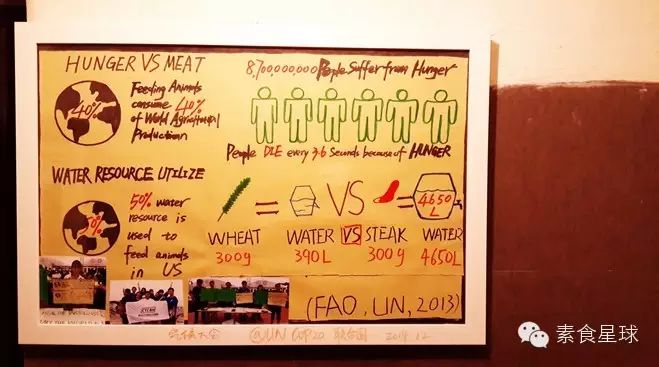 HUNGER VS MEAT
40%
Feeding Animals
consume 40%
of World Agricultural
Production
8,700,000,000 People Suffer from Hunger
People DIE every 3.6 Seconds because of HUNGER
WATER RESOURCE UTILIZE
50%
50% water
resource is
used to
feed animals
in US
= VS =
4650
L
WHEAT WATER VS STEAK WATER
300g 390L 300g 4650L
(FAO, UN, 2013)
气候大会 @UN COP20 联合国 2014.12
素食星球